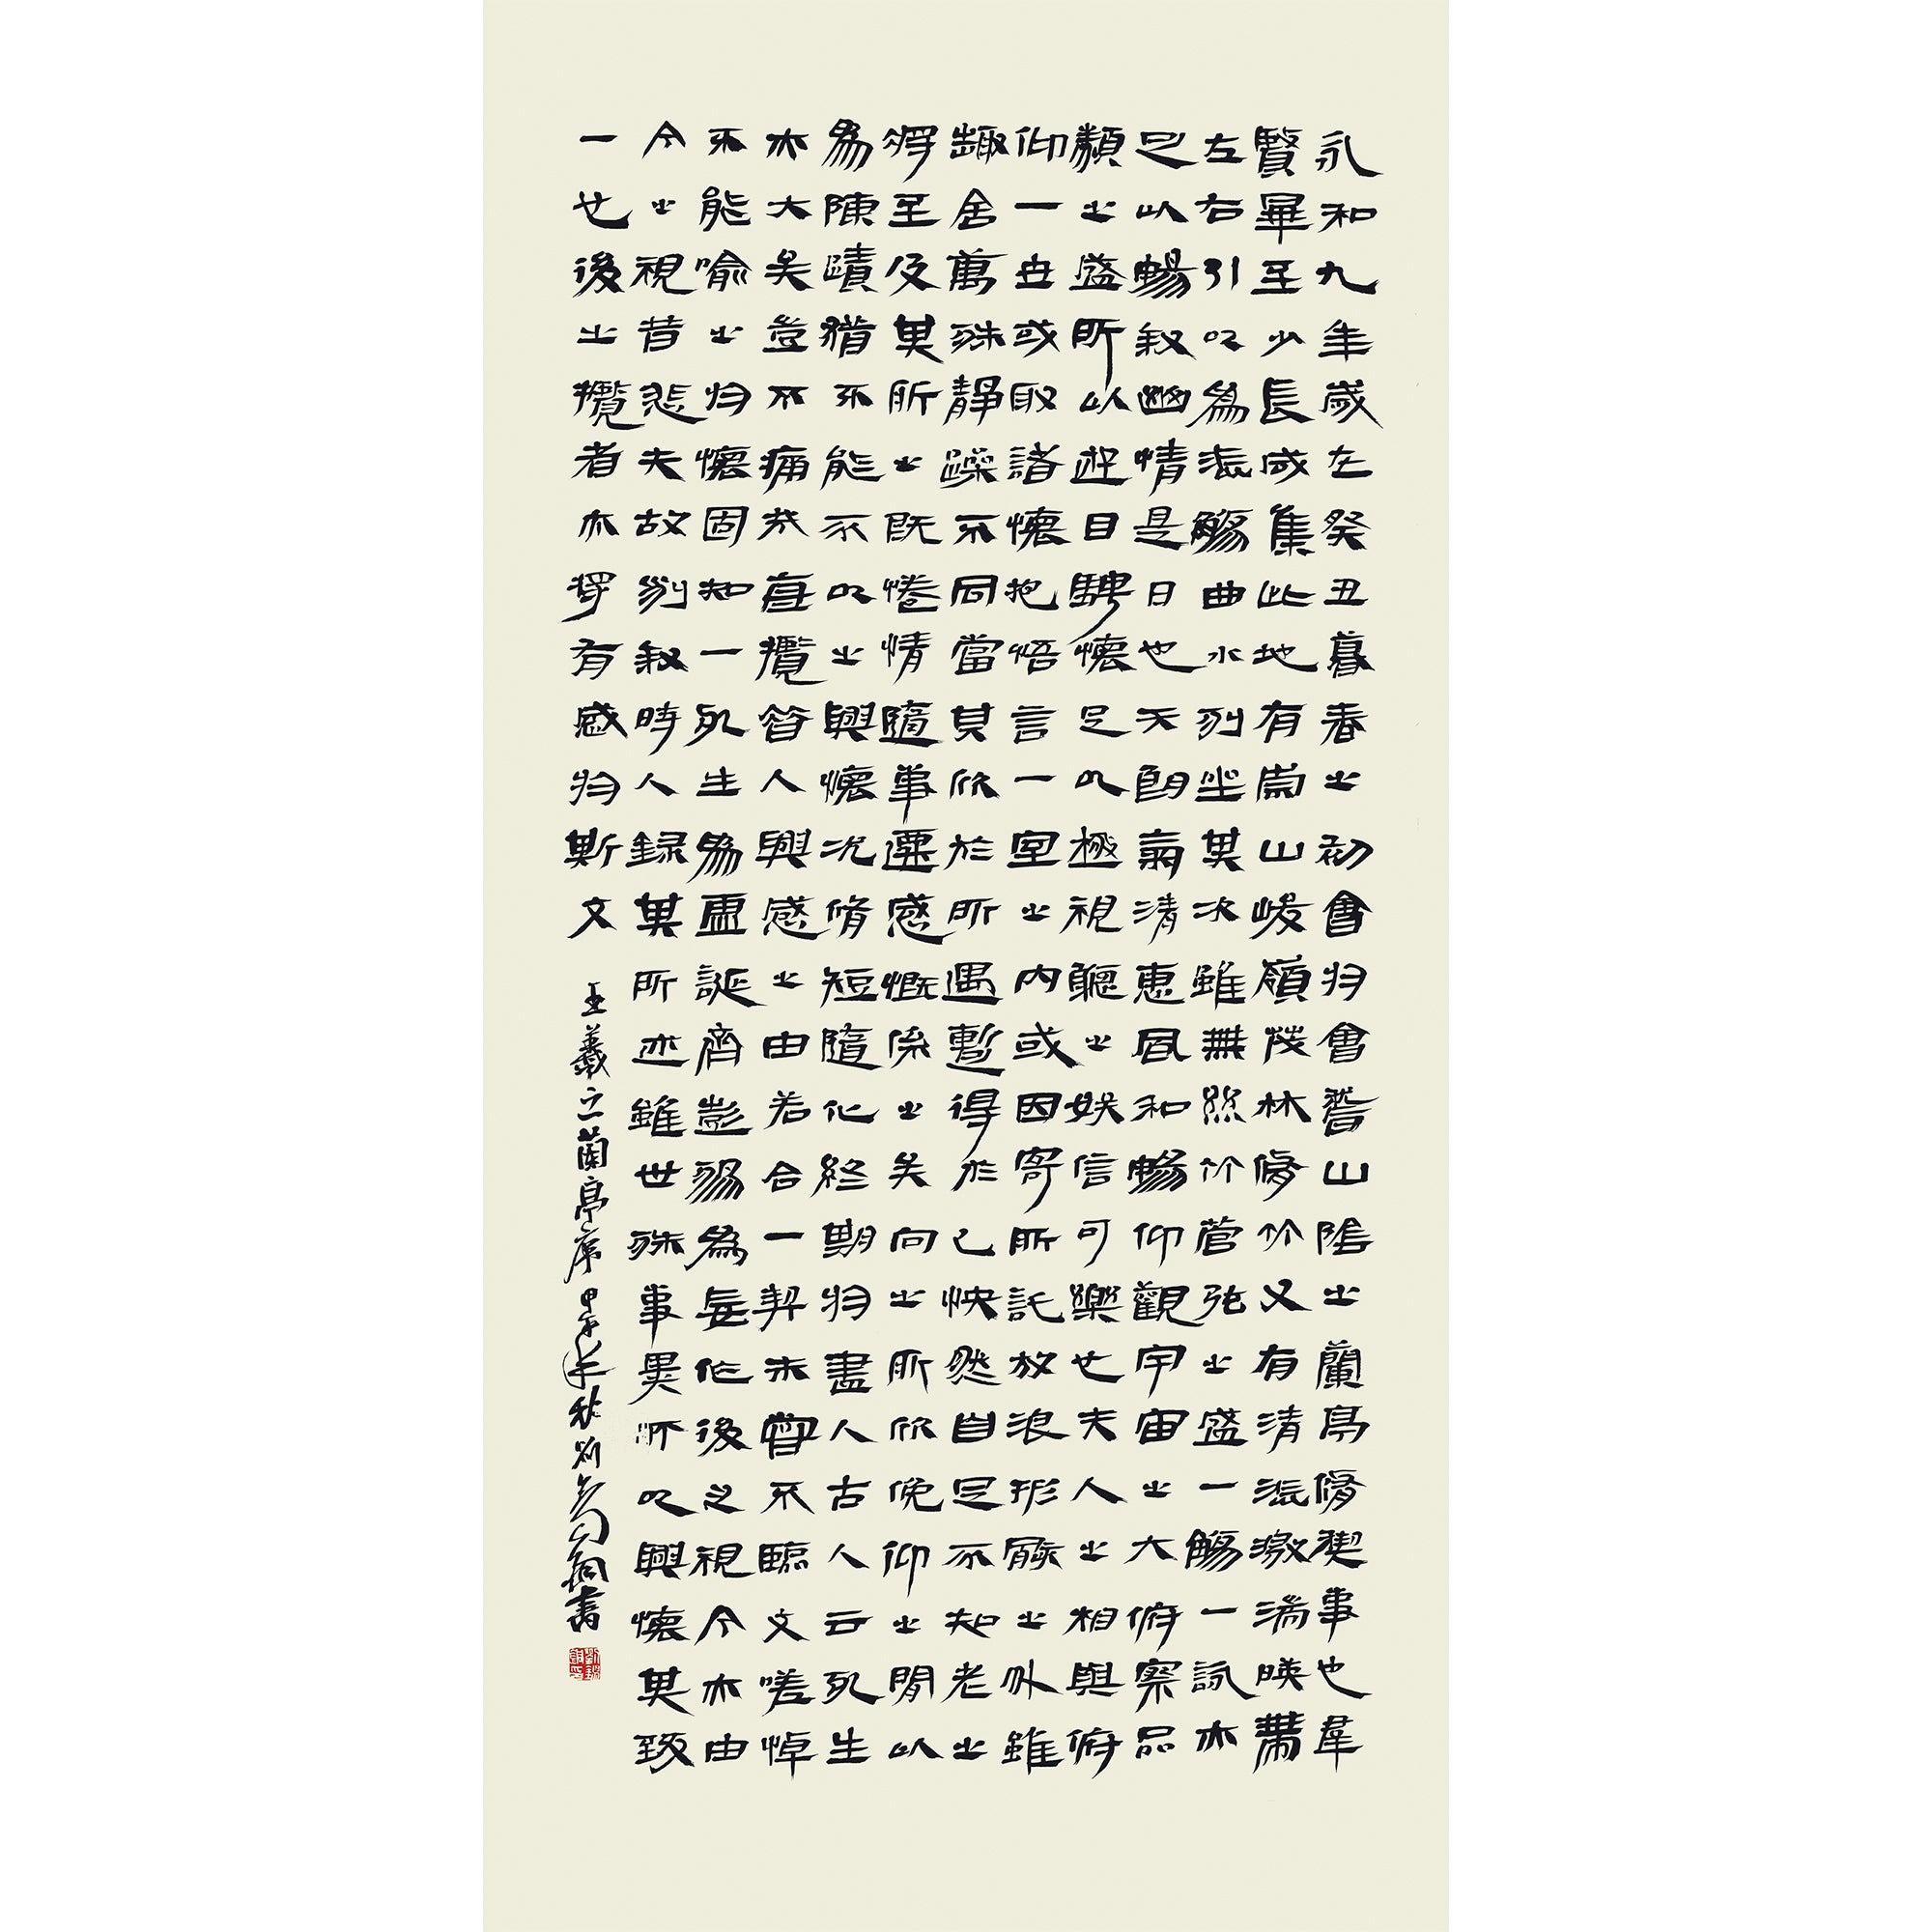 永和九年歲在癸丑暮春之初會於會稽山陰之蘭亭脩禊事也羣
賢畢至少長咸集此地有崇山峻嶺茂林脩竹又有清流激湍暎帶
左右引以為流觴曲水列坐其次雖無絲竹管弦之盛一觴一詠亦
足以暢敘幽情是日也天朗氣清惠風和暢仰觀宇宙之大俯察品
類之盛所以遊目騁懷足以極視聽之娛信可樂也夫人之相與俯
仰一世或取諸懷抱悟言一室之內或因寄所託放浪形骸之外雖
趣舍萬殊靜躁不同當其欣於所遇暫得於己怏然自足不知老之
將至及其所之既惓情隨事遷感慨係之矣向之所欣俛仰之閒以
為陳蹟猶不能不以之興懷況脩短隨化終期於盡人古人云死生
亦大矣豈不痛哉每攬昔人興感之由若合一契未嘗不臨文嗟悼
不能喻之於懷固知一死生為虛誕齊彭殤為妄作後之視今亦由
今之視昔悲夫故列敘時人錄其所述雖世殊事異所以興懷其致
一也後之攬者亦將有感於斯文
王羲之蘭亭序 甲午年秋 書